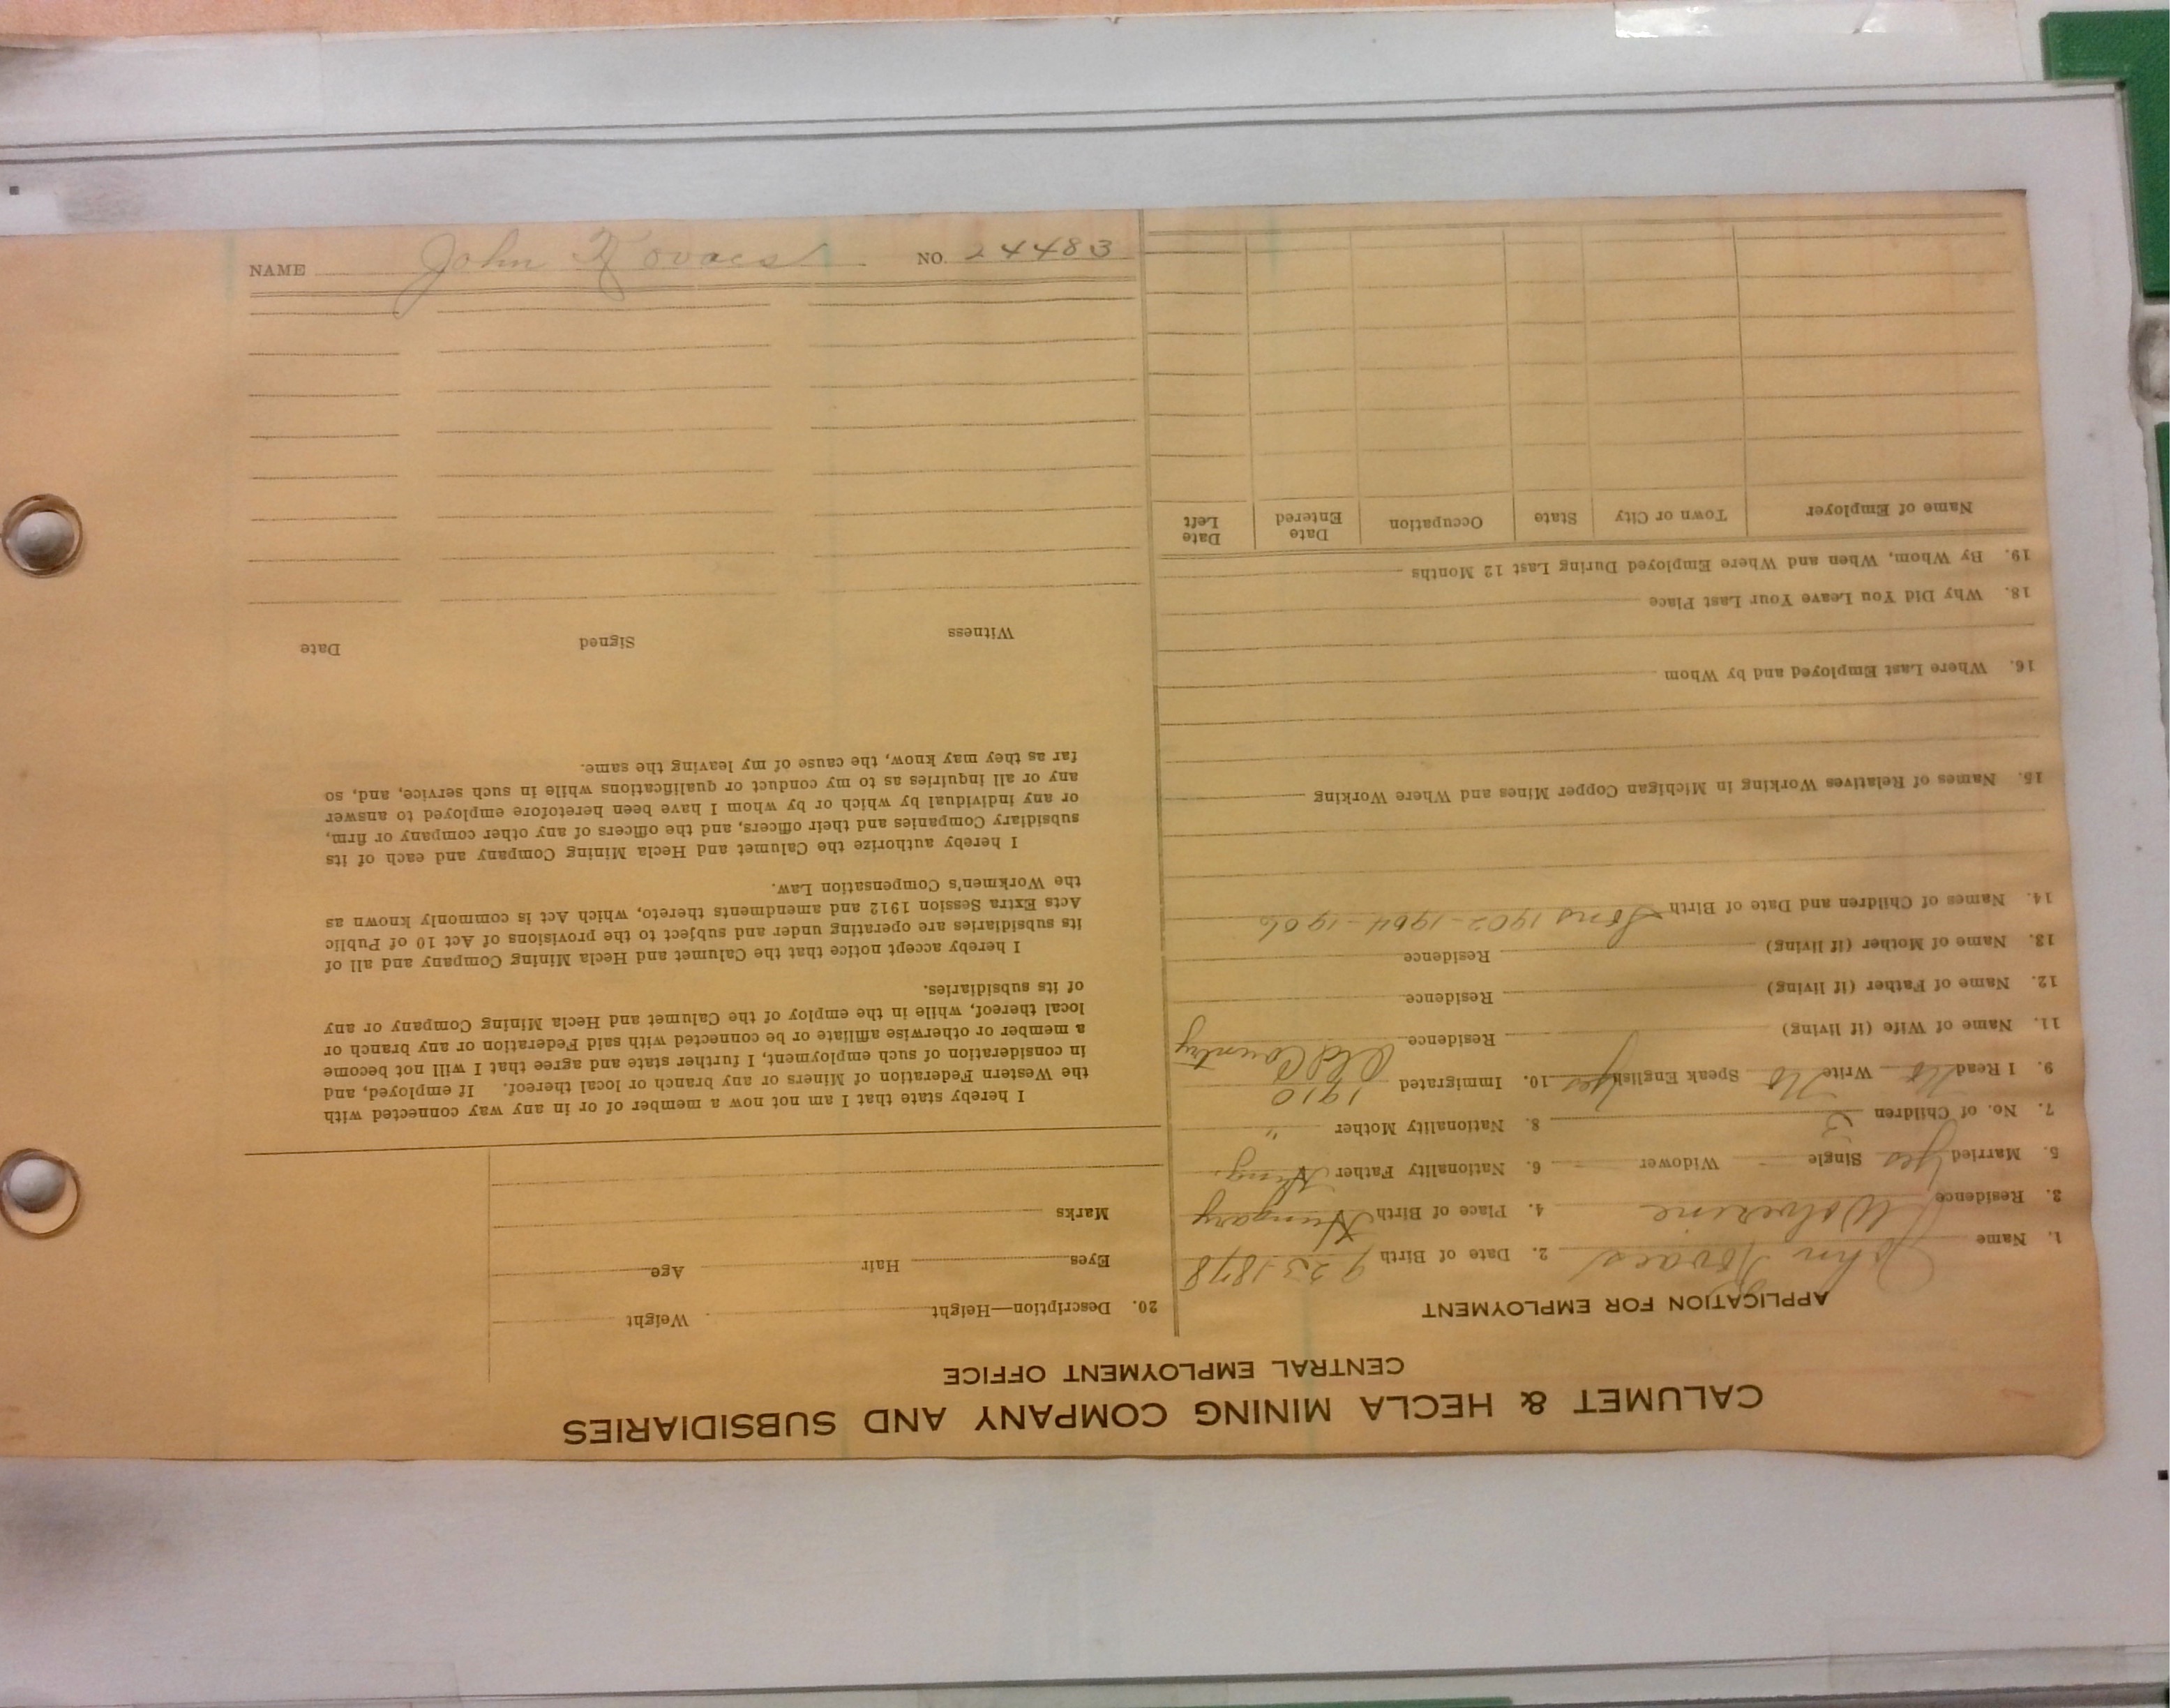 NAME John Kovacs NO. 24483
CALUMET & HECLA MINING COMPANY AND SUBSIDIARIES
CENTRAL EMPLOYMENT OFFICE
APPLICATION FOR EMPLOYMENT
1. Name John Kovacs 2. Date of Birth 9 23 1878
3. Residence Wolverine 4. Place of Birth Hungary
5. Married Yes Single Widower 6. Nationality Father Hung.
7. No. of Children 3 8. Nationality Mother "
9. I Read No Write No Speak English Yes 10. Immigrated 1910
11. Name of Wife (if living) Residence Old Country
12. Name of Father (if living) Residence
13. Name of Mother (if living) Residence
14. Names of Children and Date of Birth Sons 1902-1904-1906
15. Names of Relatives Working in Michigan Copper Mines and Where Working
16. Where Last Employed and by Whom
18. Why Did You Leave Your Last Place
19. By Whom, When and Where Employed During Last 12 Months
Name of Employer Town or City State Occupation Date Entered Date Left
20. Description—Height Weight
Eyes Hair Age
Marks
I hereby state that I am not now a member of or in any way connected with
the Western Federation of Miners or any branch or local thereof. If employed, and
in consideration of such employment, I further state and agree that I will not become
a member or otherwise affiliate or be connected with said Federation or any branch or
local thereof, while in the employ of the Calumet and Hecla Mining Company or any
of its subsidiaries.
I hereby accept notice that the Calumet and Hecla Mining Company and all of
its subsidiaries are operating under and subject to the provisions of Act 10 of Public
Acts Extra Session 1912 and amendments thereto, which Act is commonly known as
the Workmen's Compensation Law.
I hereby authorize the Calumet and Hecla Mining Company and each of its
subsidiary Companies and their officers, and the officers of any other company or firm,
or any individual by which or by whom I have been heretofore employed to answer
any or all inquiries as to my conduct or qualifications while in such service, and, so
far as they may know, the cause of my leaving the same.
Witness Signed Date